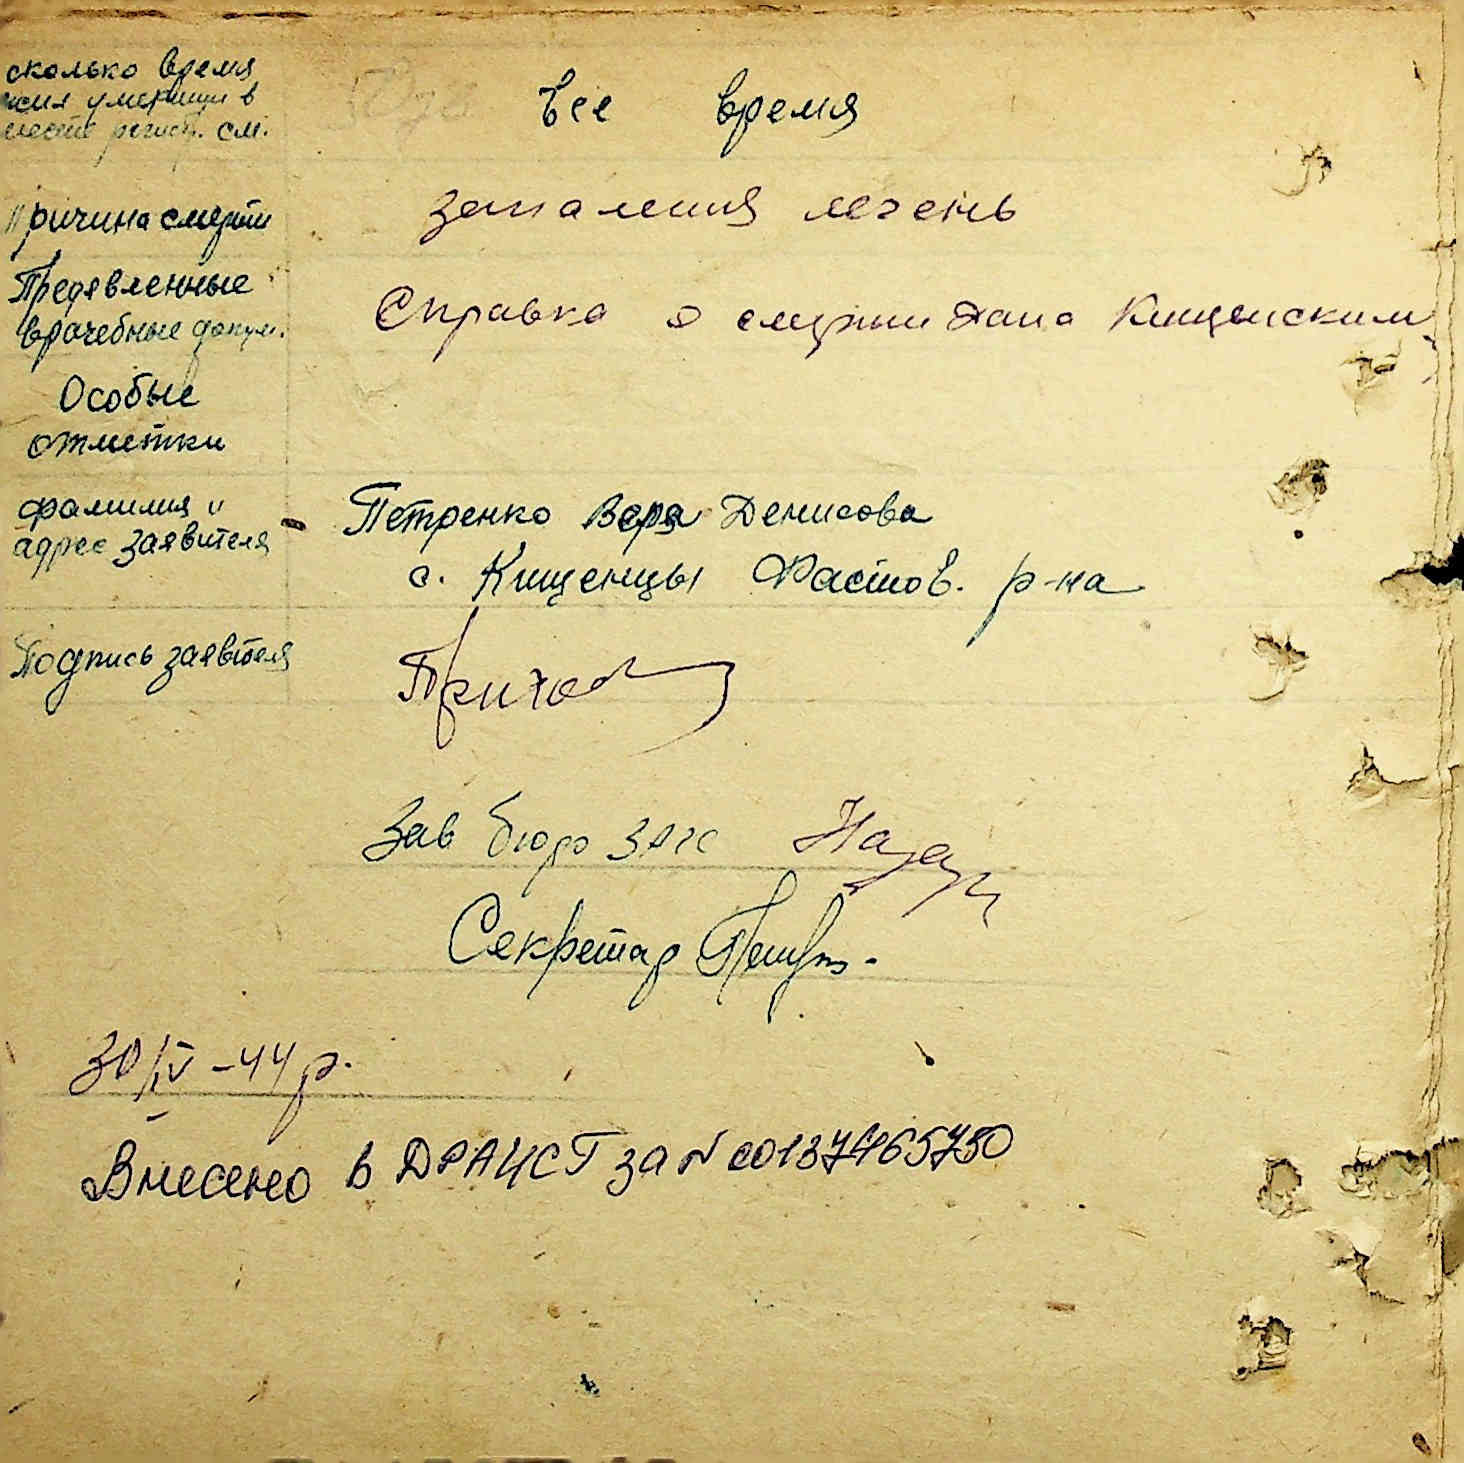 сколько время
жил умерший в
месте регистр. см.
все время
Причина смерти
запаления легень
Предявленные
врачебные докум.
Справка о смерти дана Кищенским
Особые
отметки
фамилия и
адрес заявителя
Петренко Вера Денисова
с. Кищенцы Фастов. р-на
Подпись заявителя
Зав бюро ЗАГС
Секретар
30/IV-44 р.
Внесено в ДРАЦСГ за N 00137465750